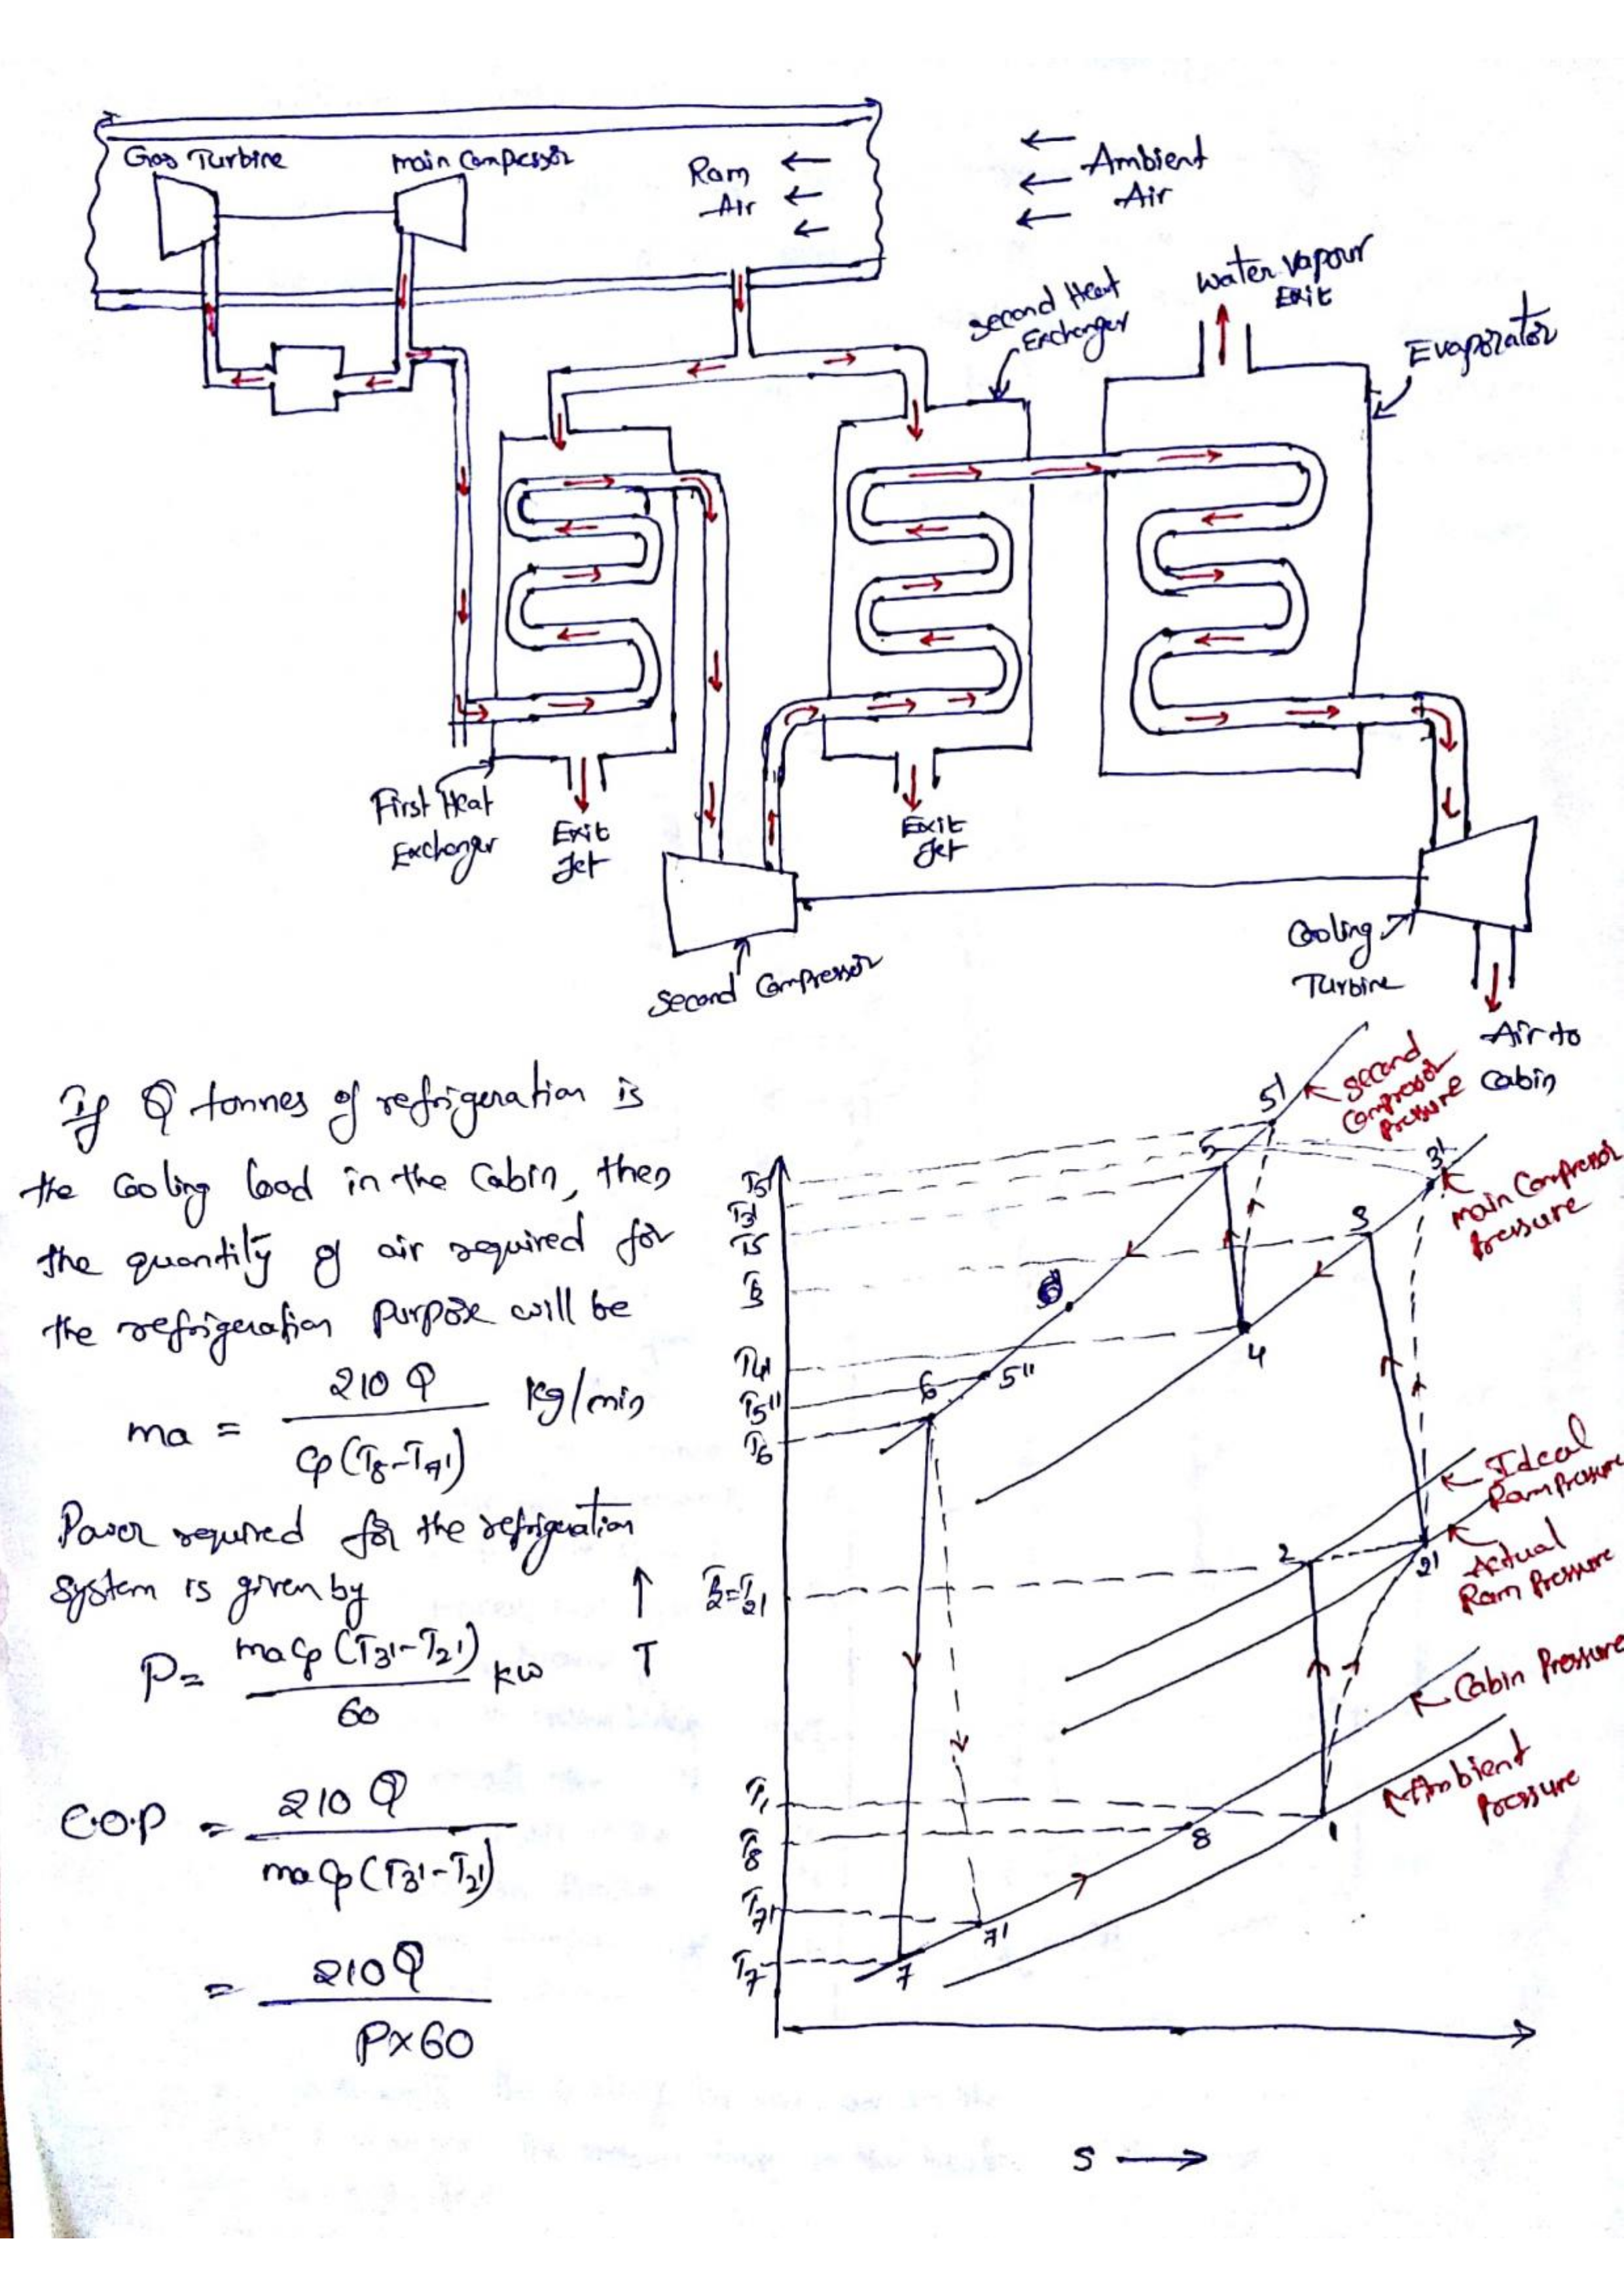 Gas Turbine
main Compressor
Ram
Air
Ambient
Air
second Heat
Exchanger
water vapour
Exit
Evaporator
First Heat
Exchanger
Exit
Jet
Exit
Jet
Second Compressor
Cooling
Turbine
Air to
Cabin
If Q tonnes of refrigeration is
the cooling load in the cabin, then
the quantity of air required for
the refrigeration purpose will be
ma = 210 Q / Cp(T8-T7') kg/min
Power required for the refrigeration
system is given by
P = ma Cp (T3'-T2') / 60 kw
C.O.P = 210 Q / ma Cp (T3'-T2')
= 210 Q / P×60
T
second
Compressor
pressure
main Compressor
Pressure
Ideal
Ram Pressure
Actual
Ram Pressure
Cabin Pressure
Ambient
Pressure
T5'
T3'
T5
T3
T4
T5"
T6
T2=T2'
T1
T8
T7'
T7
5'
5
3'
3
4
5"
6
2
2'
1
8
7'
7
S